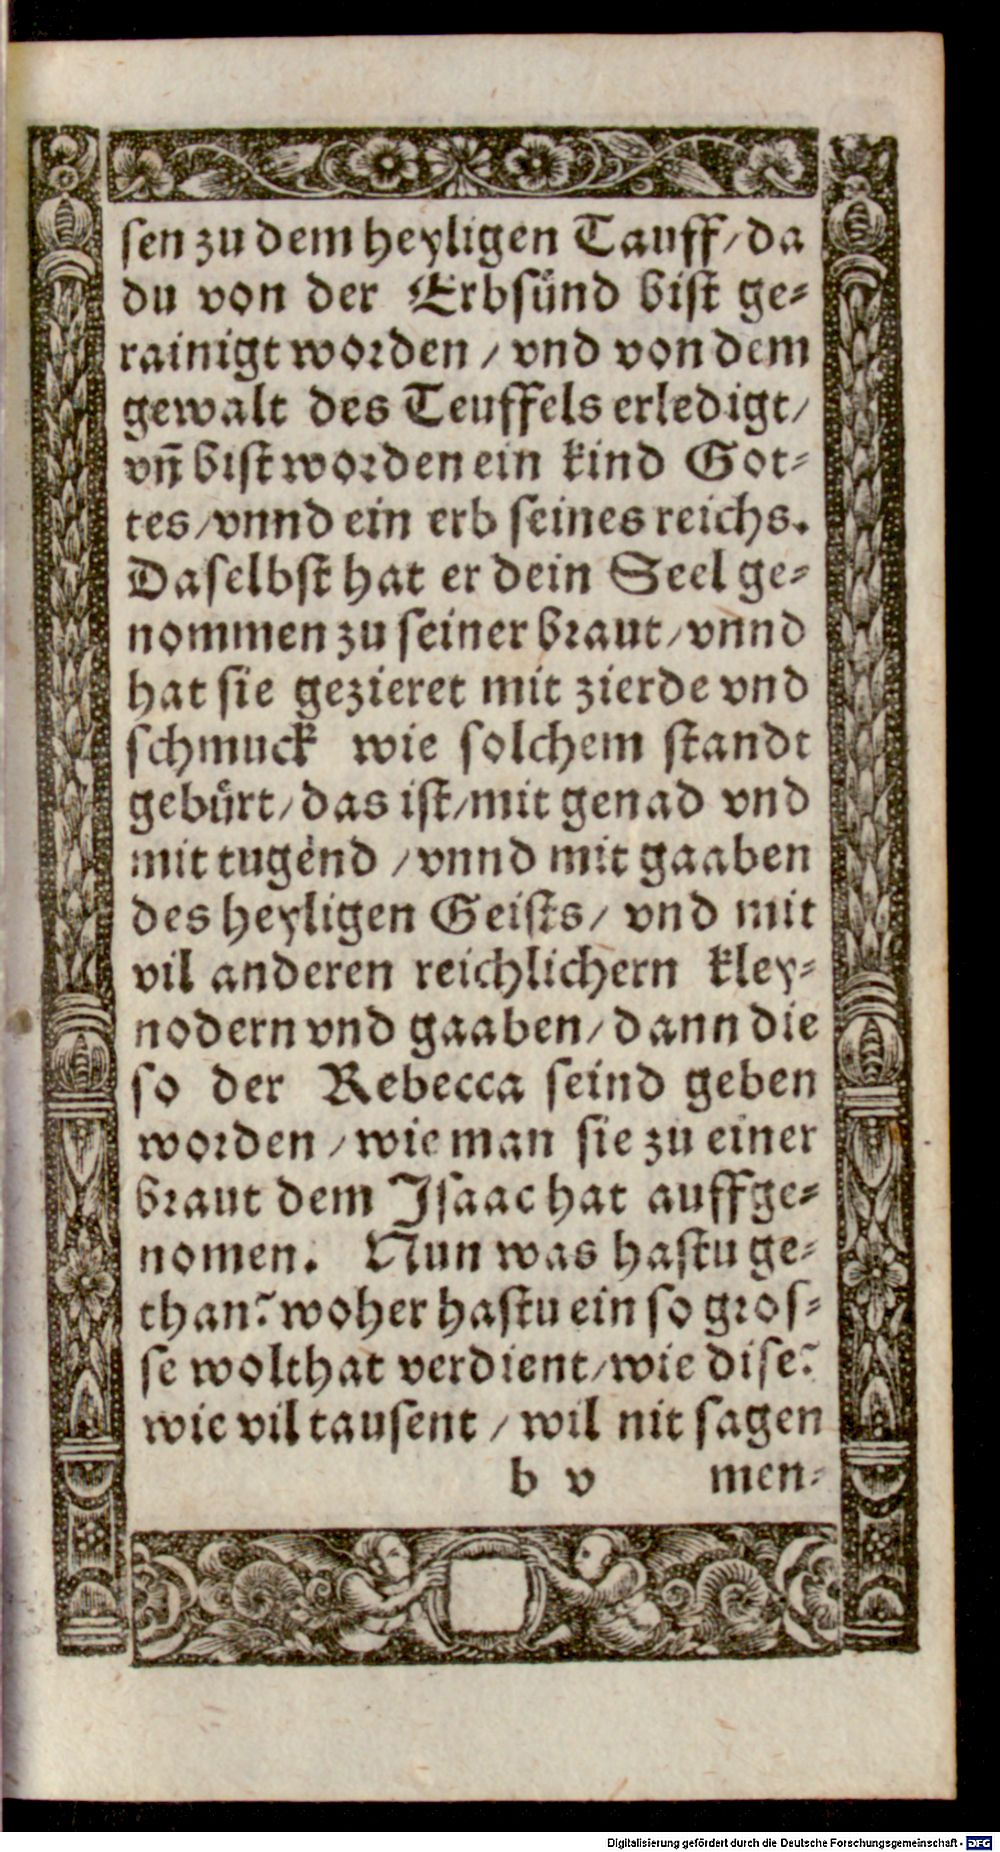 sen zu dem heyligen Tauff/da
du von der Erbsünd bist ge-
rainigt worden / vnd von dem
gewalt des Teuffels erledigt/
vñ bist worden ein kind Got-
tes/vnnd ein erb seines reichs.
Daselbst hat er dein Seel ge-
nommen zu seiner braut/vnnd
hat sie gezieret mit zierde vnd
schmuck wie solchem standt
gebürt/das ist/mit genad vnd
mit tugend /vnnd mit gaaben
des heyligen Geists/ vnd mit
vil anderen reichlichern kley-
nodern vnd gaaben/dann die
so der Rebecca seind geben
worden /wie man sie zu einer
braut dem Isaac hat auffge-
nomen. Nun was hastu ge-
than? woher hastu ein so gros-
se wolthat verdient/wie dise?
wie vil tausent / wil nit sagen
b v men-
Digitalisierung gefördert durch die Deutsche Forschungsgemeinschaft - DFG